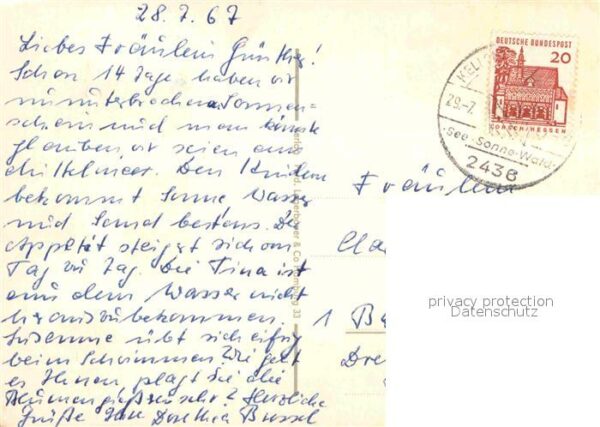 28.7.67
Liebes Fräulein Günther!
Schon 14 Tage haben wir
ununterbrochen Sonnen=
schein und man könnte
glauben wir seien am
Mittelmeer. Den Kindern
bekommt Sonne Wasser
und Sand bestens. Der
Appetit steigert sich von
Tag zu Tag. Die Tina ist
aus dem Wasser nicht
herauszubekommen.
Susanne übt sich eifrig
beim Schwimmen. Wie geht
es Ihnen, plagt Sie die
Blumengießen sehr? Herzliche
Grüße Ihre Dorothea
& Co Hamburg 33
DEUTSCHE BUNDESPOST
20
LORSCH/HESSEN
KELL
29.-7.
See-Sonne-Wald
2436
Fräulein
Cla
1 B
Dre
privacy protection
Datenschutz